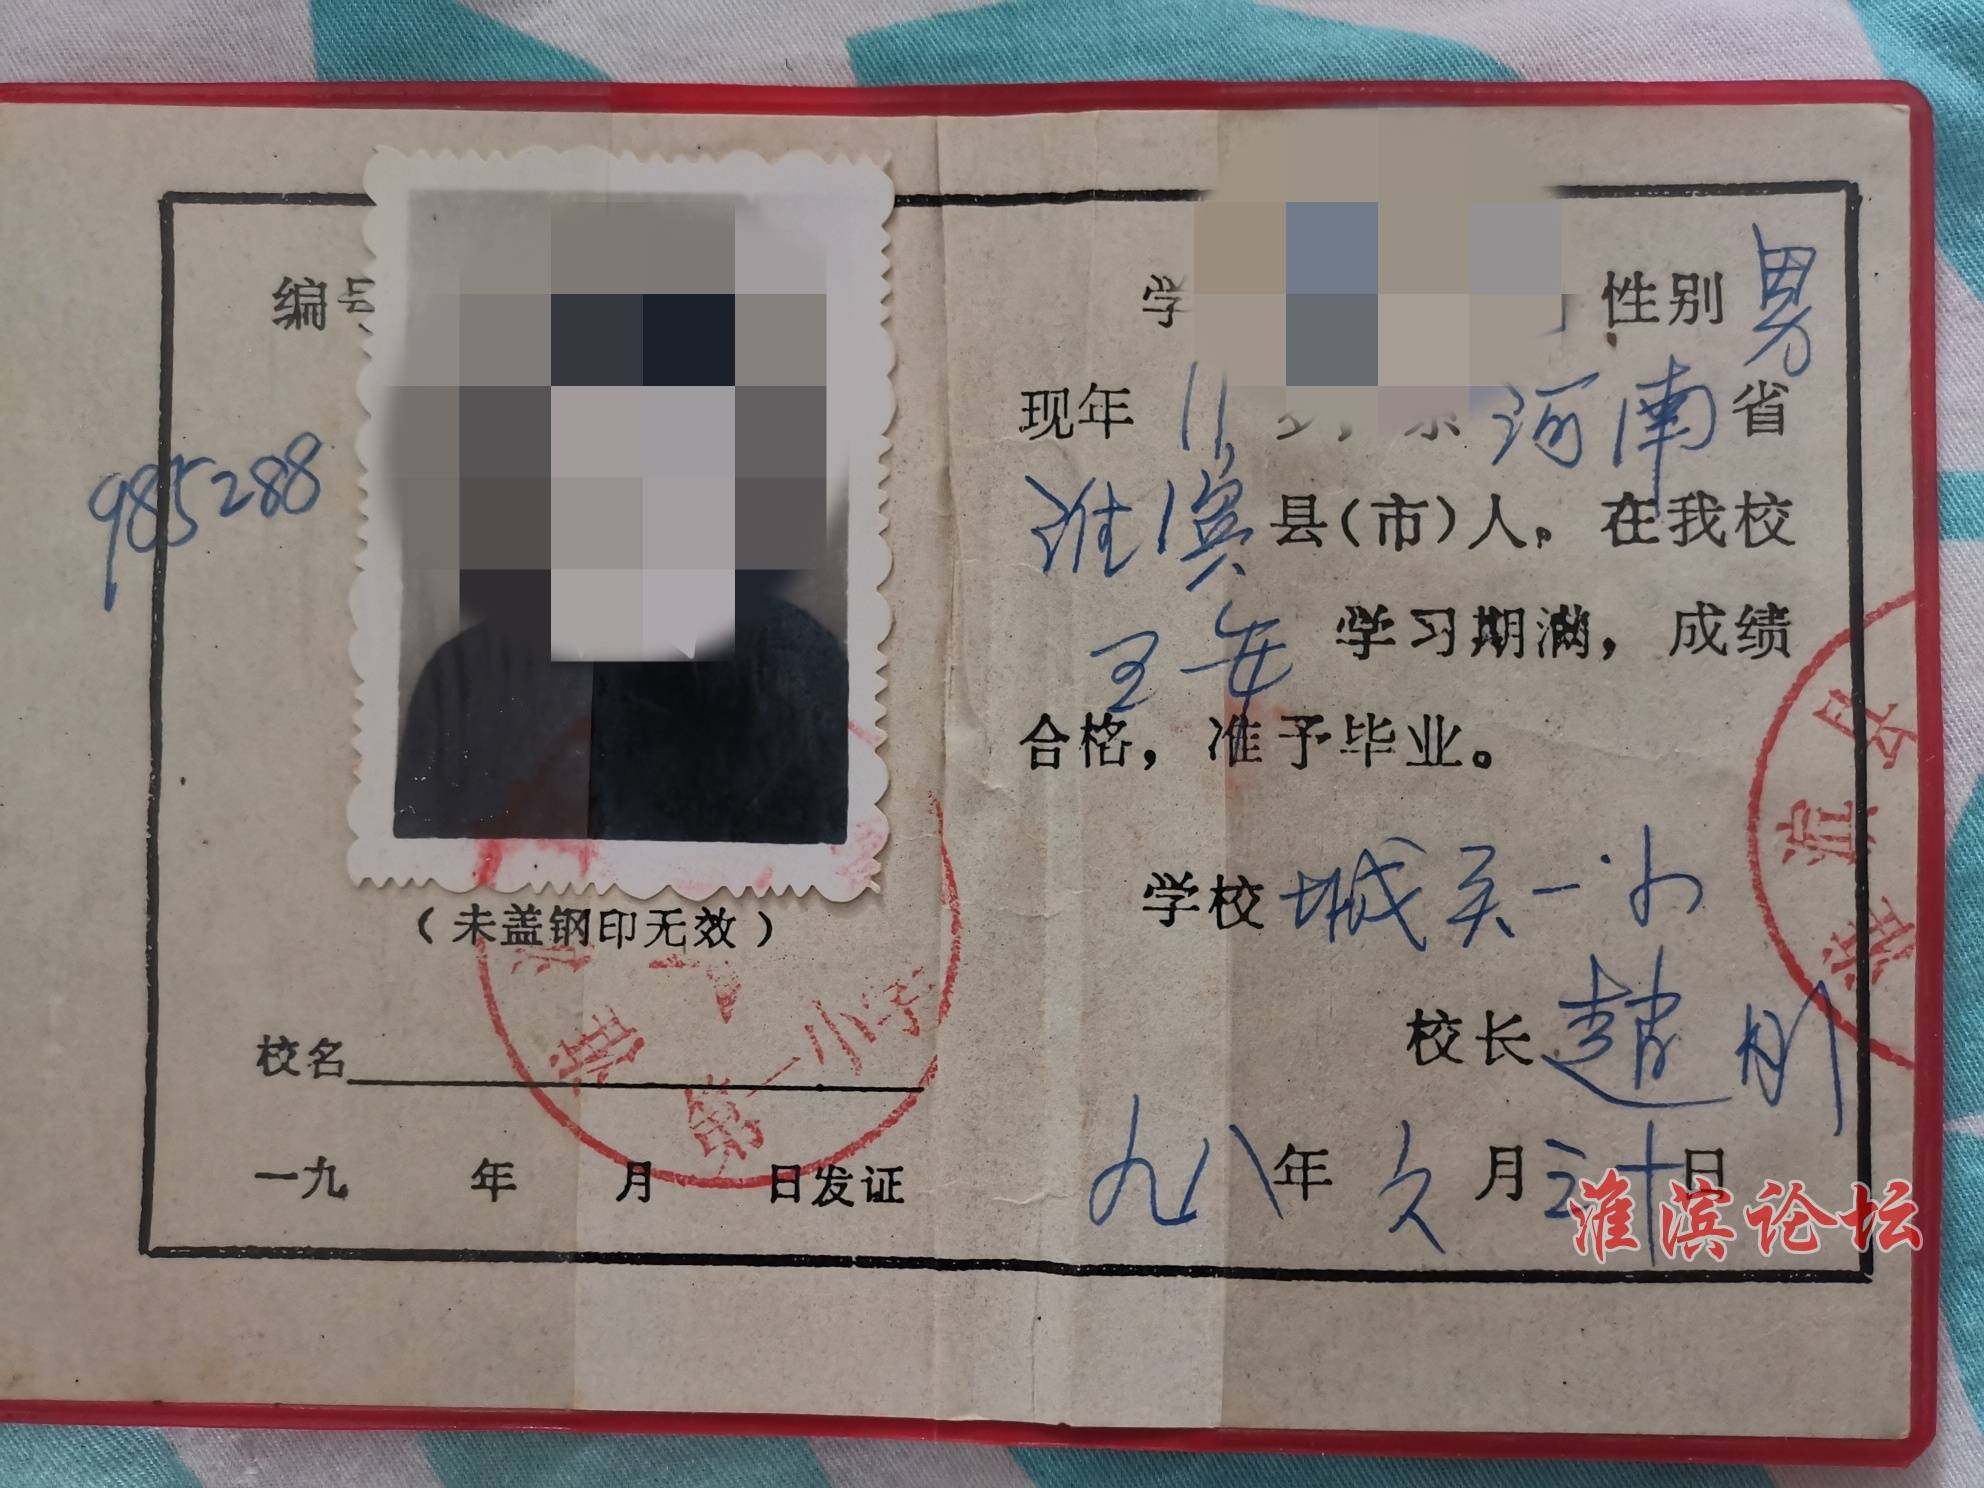 编号
985288
(未盖钢印无效)
校名
一九 年 月 日发证
第一小学
学 性别 男
现年 11 岁, 系 河南 省
淮滨 县(市)人。在我校
学习期满, 成绩
合格, 准予毕业。
学校 城关一小
校长 赵刚
九八 年 六 月 三十 日
淮滨县
淮滨论坛